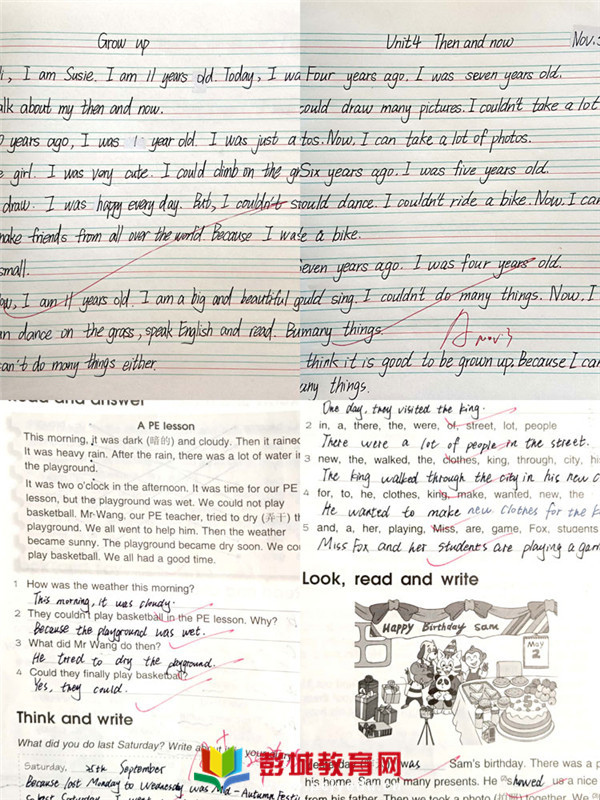 Grow up
I am Susie. I am 11 years old. Today, I wa
alk about my then and now.
years ago, I was 1 year old. I was just a
girl. I was very cute. I could climb on the gr
draw. I was happy every day. But, I couldn't s
make friends from all over the world. Because I wa
small.
ow, I am 11 years old. I am a big and beautiful g
an dance on the grass, speak English and read. Bu
can't do many things either.
Unit4 Then and now Nov.
Four years ago. I was seven years old.
could draw many pictures. I couldn't take a lot
tos. Now, I can take a lot of photos.
Six years ago. I was five years old.
ould dance. I couldn't ride a bike. Now. I can
e a bike.
Seven years ago. I was four years old.
uld sing. I couldn't do many things. Now, I
many things.
A Nov 3
think it is good to be grown up. Because I can
any things.
Read and answer
A PE lesson
This morning, it was dark (暗的) and cloudy. Then it rained
It was heavy rain. After the rain, there was a lot of water i
the playground.
It was two o'clock in the afternoon. It was time for our PE
lesson, but the playground was wet. We could not play
basketball. Mr Wang, our PE teacher, tried to dry (弄干) th
playground. We all went to help him. Then the weather
became sunny. The playground became dry soon. We cou
play basketball. We all had a good time.
1 How was the weather this morning?
This morning, it was cloudy.
2 They couldn't play basketball in the PE lesson. Why?
Because the playground was wet.
3 What did Mr Wang do then?
He tried to dry the playground.
4 Could they finally play basketball?
Yes, they could.
Think and write
What did you do last Saturday? Write about
Saturday, 25th September
Because last Monday to Wednesday was Mid-Autumn Festi
One day, they visited the king.
2 in, a, there, the, were, of, street, lot, people
There were a lot of people in the street.
3 new, the, walked, the, clothes, king, through, city, his
The king walked through the city in his new c
4 for, to, he, clothes, king, make, wanted, new, the
He wanted to make new clothes for the k
5 and, a, her, playing, Miss, are, game, Fox, students
Miss Fox and her students are playing a gam
Look, read and write
Happy Birthday Sam
May
2
was Sam's birthday. There was a p
his home. Sam got many presents. He showed us a nice
from his father. Then we took a photo together. We
彭城教育网